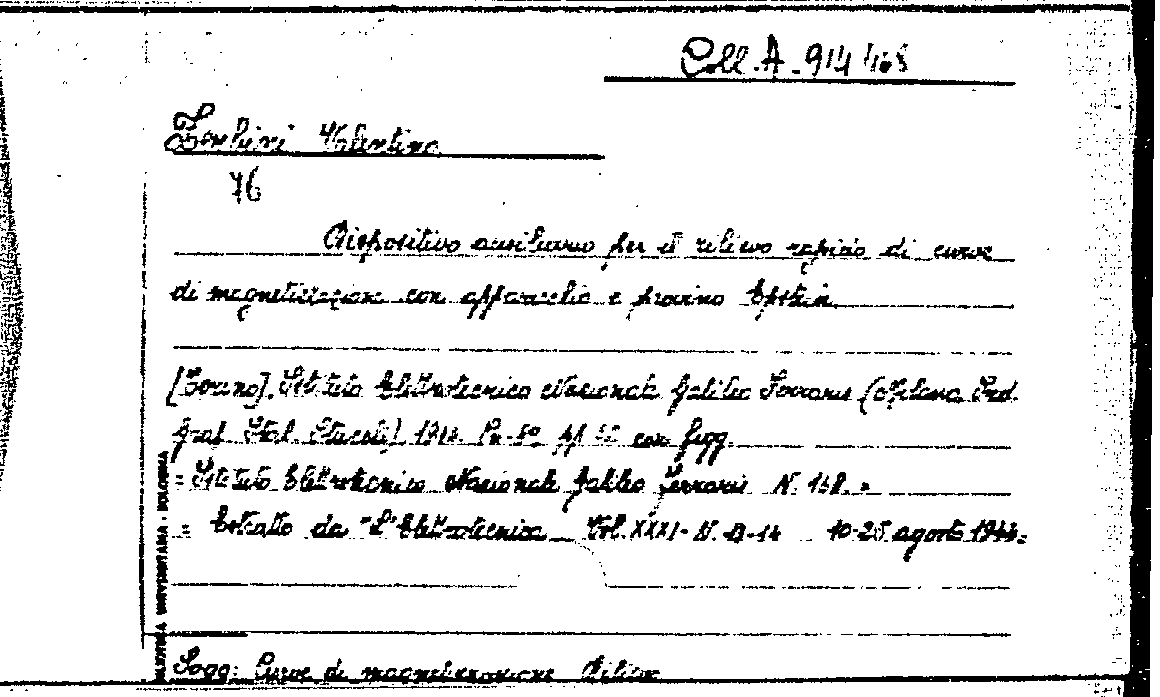 Coll. A. 914 468
Zerbini Valentino
76
Dispositivo ausiliario per il rilievo rapido di curve
di magnetizzazione con apparecchio e provino Epstein
[Torino]. Istituto Elettrotecnico Nazionale Galileo Ferraris (Milano Ind.
Graf. Ital. Stucchi) 1944. In-8° pp. con figg.
= Istituto Elettrotecnico Nazionale Galileo Ferraris N. =
= Estratto da "L'Elettrotecnica Vol. XXXI - N. 13-14 10-25 agosto 1944 =
Sogg: Curve di magnetizzazione Rilievo
BIBLIOTECA UNIVERSITARIA - BOLOGNA